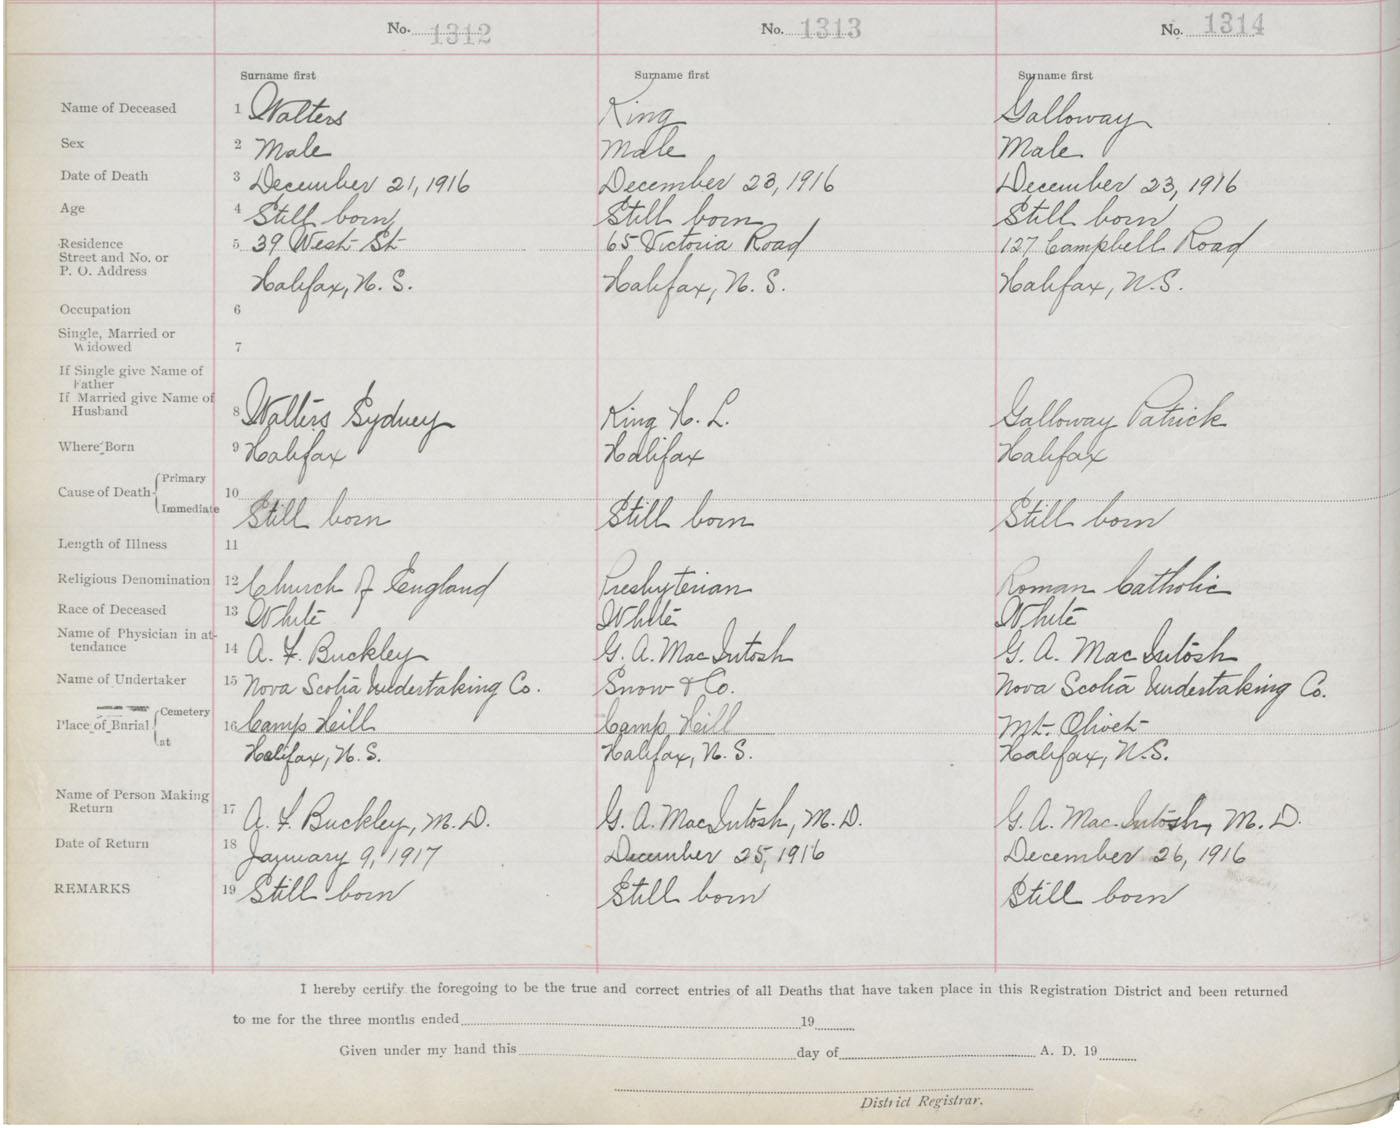 No. 1312 No. 1313 No. 1314
Surname first Surname first Surname first
Name of Deceased 1 Walters King Galloway
Sex 2 Male Male Male
Date of Death 3 December 21, 1916 December 23, 1916 December 23, 1916
Age 4 Still born Still born Still born
Residence 5 39 West St 65 Victoria Road 127 Campbell Road
Street and No. or
P. O. Address Halifax, N. S. Halifax, N. S. Halifax, N.S.
Occupation 6
Single, Married or
Widowed 7
If Single give Name of
Father
If Married give Name of
Husband 8 Walters Sydney King H. L. Galloway Patrick
Where Born 9 Halifax Halifax Halifax
Primary
Cause of Death 10
Immediate Still born Still born Still born
Length of Illness 11
Religious Denomination 12 Church of England Presbyterian Roman Catholic
Race of Deceased 13 White White White
Name of Physician in at-
tendance 14 A. F. Buckley G. A. MacIntosh G. A. MacIntosh
Name of Undertaker 15 Nova Scotia Undertaking Co. Snow & Co. Nova Scotia Undertaking Co.
Cemetery
Place of Burial 16 Camp Hill Camp Hill Mt. Olivet
at Halifax, N. S. Halifax, N. S. Halifax, N.S.
Name of Person Making
Return 17 A. F. Buckley, M.D. G. A. MacIntosh, M.D. G. A. MacIntosh, M.D.
Date of Return 18 January 9, 1917 December 25, 1916 December 26, 1916
REMARKS 19 Still born Still born Still born
I hereby certify the foregoing to be the true and correct entries of all Deaths that have taken place in this Registration District and been returned
to me for the three months ended 19
Given under my hand this day of A. D. 19
District Registrar.